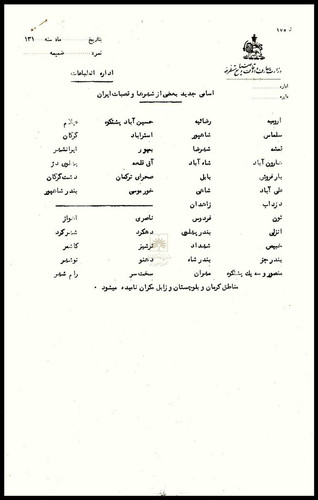 وزارت معارف و اوقاف و صنایع مستظرفه
بتاریخ ماه سنه ۱۳۱
نمره ضمیمه
اداره
دایره
اداره انطباعات
اسامی جدید بعضی از شهرها و قصبات ایران
ارومیه رضائیه حسین آباد پشتکوه عیلام
سلماس شاهپور استراباد گرگان
قمشه شهرضا بمپور ایرانشهر
هارون آباد شاه آباد آق قلعه پهلوی دژ
بارفروش بابل صحرای ترکمان دشت گرگان
علی آباد شاهی خورموسی بندر شاهپور
دزداب زاهدان
تون فردوس ناصری اهواز
انزلی بندر پهلوی دهکرد شهرکرد
خبیص شهداد ترشیز کاشمر
بندر جز بندر شاه دهنو نوشهر
منصور و سه یك پشتکوه مهران سخت سر رام سر
مناطق کرمان و بلوچستان و زابل مکران نامیده میشود ۰